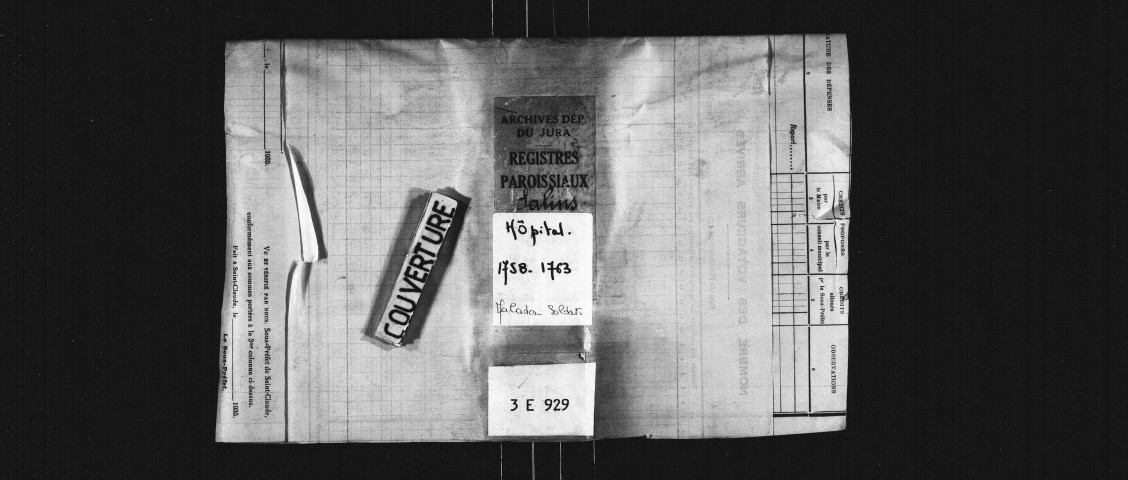 ARCHIVES DÉP.
DU JURA
REGISTRES
PAROISSIAUX
Salins
Hôpital.
1758-1763
Malades Soldats
3 E 929
COUVERTURE
le
1935.
VU ET VÉRIFIÉ PAR NOUS, Sous-Préfet de Saint-Claude,
conformément aux sommes portées à la 5me colonne ci-dessus.
Fait à Saint-Claude, le 1935.
Le Sous-Préfet,
NATURE DES DÉPENSES
Report
CRÉDITS PROPOSÉS
par
le Maire
par le
conseil municipal
CRÉDITS
alloués
pr le Sous-Préfet
OBSERVATIONS